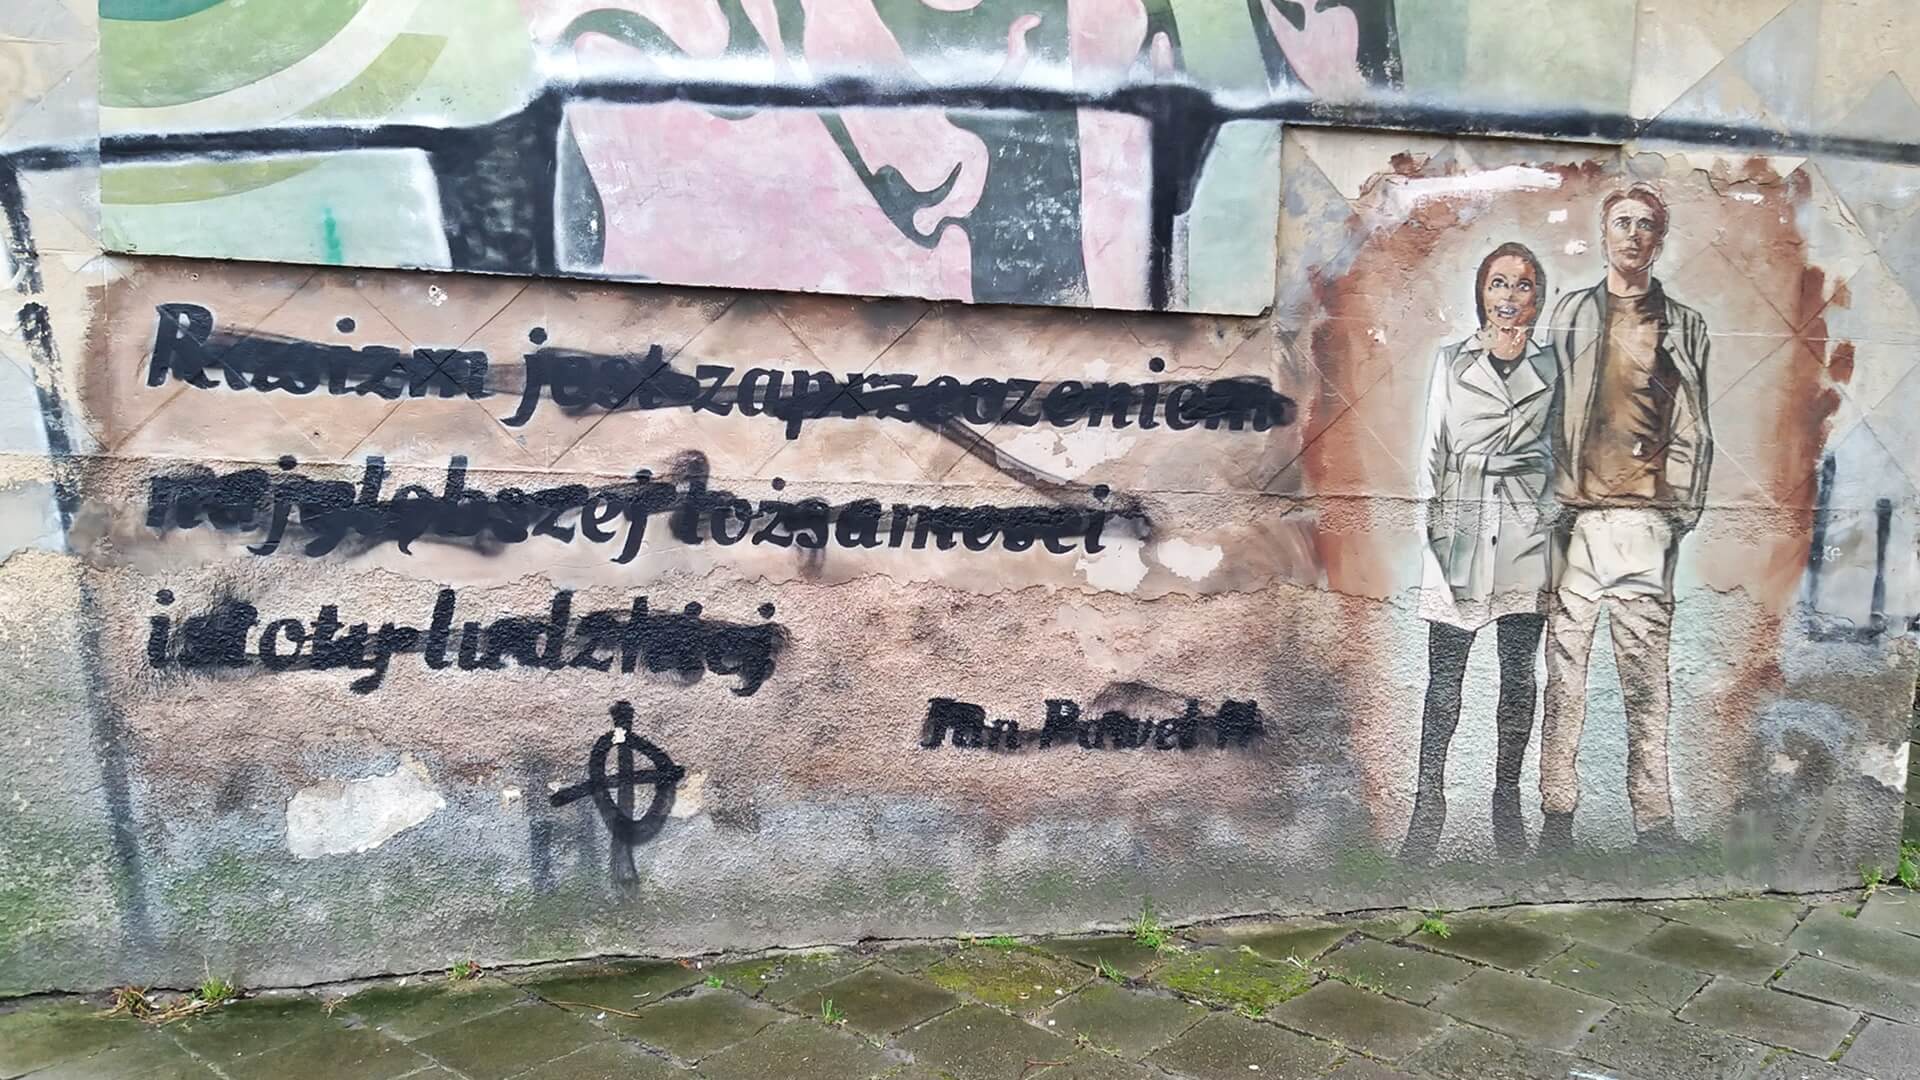 Rasizm jest zaprzeczeniem
najgłębszej tożsamości
istoty ludzkiej
Jan Paweł II